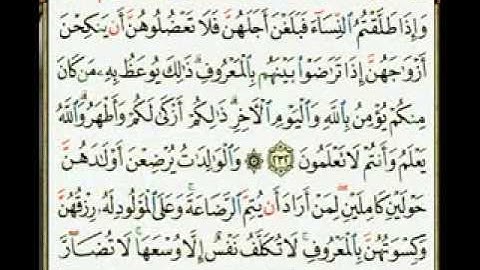 وَإِذَا طَلَّقْتُمُ ٱلنِّسَآءَ فَبَلَغْنَ أَجَلَهُنَّ فَلَا تَعْضُلُوهُنَّ أَن يَنكِحْنَ
أَزْوَٰجَهُنَّ إِذَا تَرَٰضَوْا۟ بَيْنَهُم بِٱلْمَعْرُوفِ ۗ ذَٰلِكَ يُوعَظُ بِهِۦ مَن كَانَ
مِنكُمْ يُؤْمِنُ بِٱللَّهِ وَٱلْيَوْمِ ٱلْـَٔاخِرِ ۗ ذَٰلِكُمْ أَزْكَىٰ لَكُمْ وَأَطْهَرُ ۗ وَٱللَّهُ
يَعْلَمُ وَأَنتُمْ لَا تَعْلَمُونَ ٢٣٢ ۞ وَٱلْوَٰلِدَٰتُ يُرْضِعْنَ أَوْلَٰدَهُنَّ
حَوْلَيْنِ كَامِلَيْنِ ۖ لِمَنْ أَرَادَ أَن يُتِمَّ ٱلرَّضَاعَةَ ۚ وَعَلَى ٱلْمَوْلُودِ لَهُۥ رِزْقُهُنَّ
وَكِسْوَتُهُنَّ بِٱلْمَعْرُوفِ ۚ لَا تُكَلَّفُ نَفْسٌ إِلَّا وُسْعَهَا ۚ لَا تُضَآرَّ